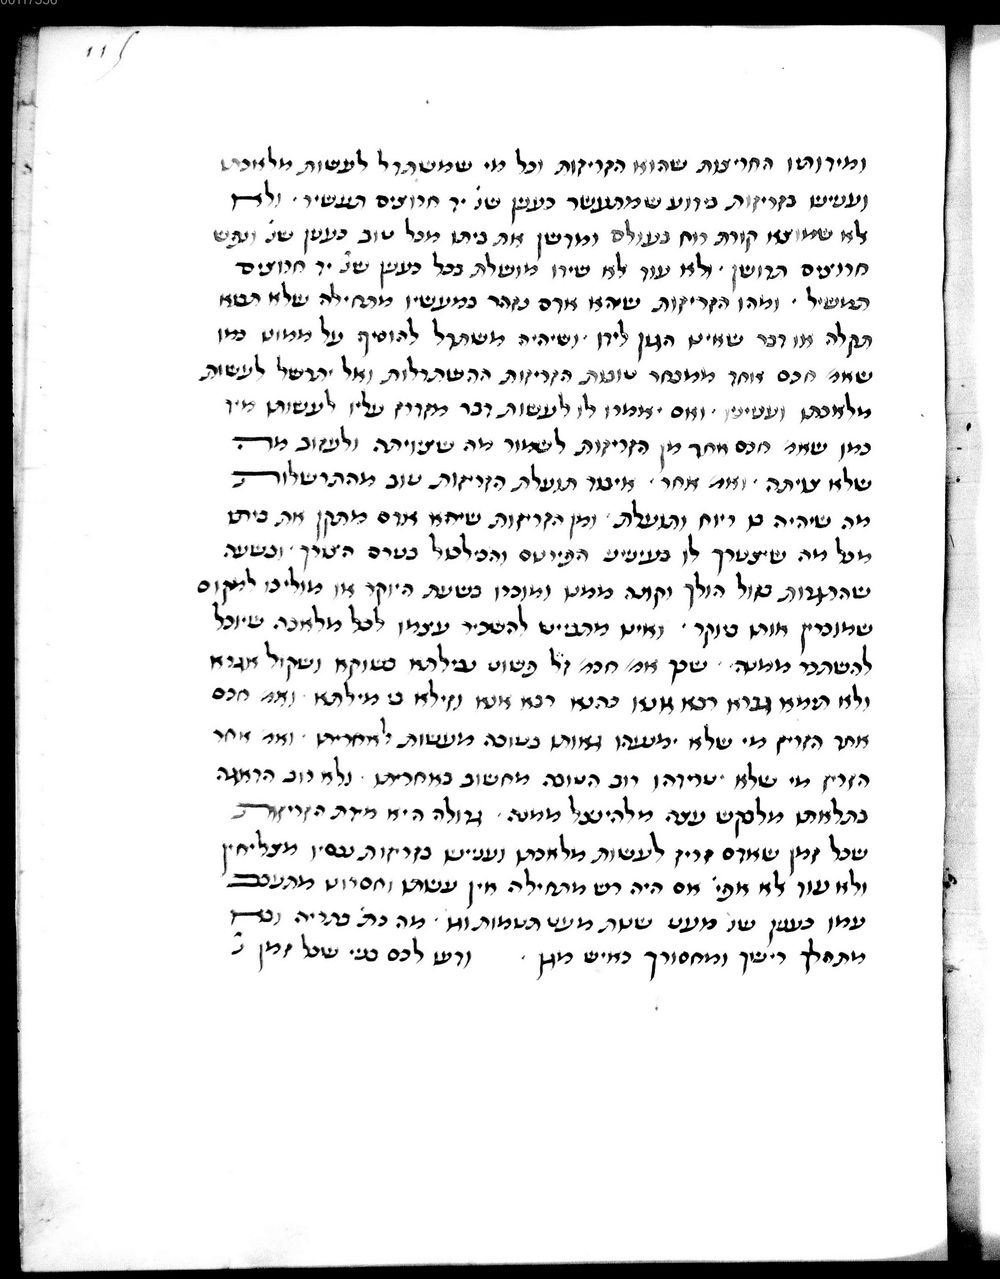 ומידותיו החריצות שהוא הזריזות וכל מי שמשתדל לעשות מלאכתו
ועניינו בזריזות בידוע שמתעשר כענין שנ' יד חרוצים תעשיר · ולא
לא שמוצא קורת רוח בעולם ומדשן את ביתו מכל טוב כענין שנ' ונפש
חרוצים תדושן · ולא עוד לא שידו מושלת בכל כענין שנ' יד חרוצים
תמשול · ומהו הזריזות שיהא אדם נזהר במעשיו מתחילה שלא תבא
תקלה או דבר שאינו הגון לידו · ושיהיה משתדל להוסיף על ממונו כמו
שאמ' חכם אחד ממבחר טובות הזריזות ההשתדלות ואל יתרשל לעשות
מלאכתו ועניניו · ואם יאמרו לו לעשות דבר מזדרז עליו לעשותו מיד
כמו שאמ' חכם אחד מן הזריזות לשמור מה שצוויתה ולעזוב מה
שלא צויתה · ואמ' אחר · איבוד תועלת הזריזות טוב מהתרשלות
מה שיהיה בו ריוח ותועלת · ומן הזריזות שיהא אדם מתקן את ביתו
מכל מה שיצטרך לו בענייני הפירנוס והכילכול בטרם הצורך · ובשעה
שהתגרות בזול הולך וקונה ממנו ומוכרו בשעת היוקר או מוליכו למקום
שמוכרין אותו ביוקר · ואינו מתבייש להשכיר עצמו לכל מלאכה שיוכל
להשתכר ממנה · שכך אמ' חכמ' ז"ל פשוט נבילתא בשוקא ושקול אגרא
ולא תימא גברא רבא אנא כהנא רבא אנא וזילא בי מילתא · ואמ' חכם
אחד הזריז מי שלא ימנעהו גאותו בטובה מעשות לאחריתו · ואמ' אחר
הזריז מי שלא יטרידהו רוב הטובה מחשוב באחריתו · ולא רוב הדאגה
בתלאותו מלבקש עצה מלהינצל ממנה · גדולה היא מידת הזריזות
שכל זמן שאדם זריז לעשות מלאכתו ועניינו בזריזות נכסיו מצליחין
ולא עוד לא אפי' אם היה רש מתחילה אין עשותו וחסרונו מתעכב
עמו כענין שנ' מעט שנות מעט תנומות וגו' · מה כת' בתריה ובא
מתהלך רישך ומחסורך כאיש מגן · ודעו לכם בני שכל זמן ש'